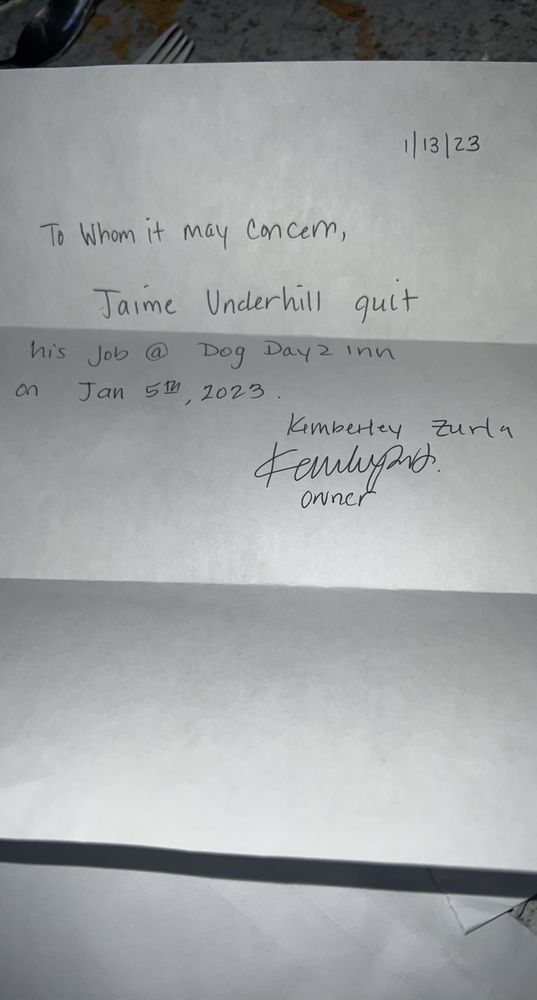 1/13/23
To Whom it may Concern,
Jaime Underhill quit
his Job @ Dog Dayz inn
on Jan 5th, 2023.
Kimberley Zurla
owner